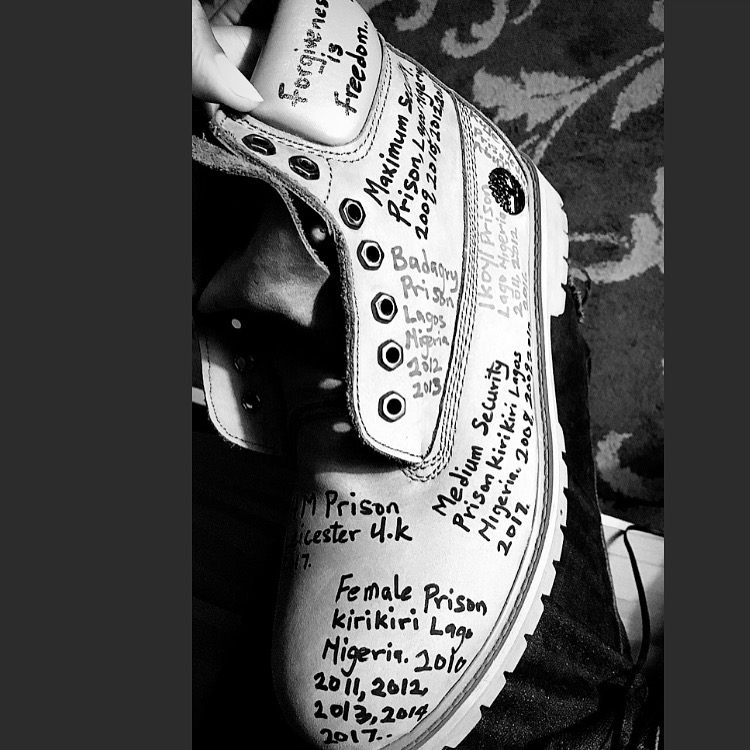 Forgiveness
is
freedom..
Maximum
Prison, Lagos Nigeria
2009, 2010, 2012
Badagry
Prison
Lagos
Nigeria
2012
2013
Ikoyi Prison
Lagos Nigeria
2012
Medium Security
Prison Kirikiri Lagos
Nigeria. 2008, 2009
2017.
M Prison
icester U.K
17.
Female Prison
Kirikiri Lago
Nigeria. 2010
2011, 2012,
2013, 2014
2017..